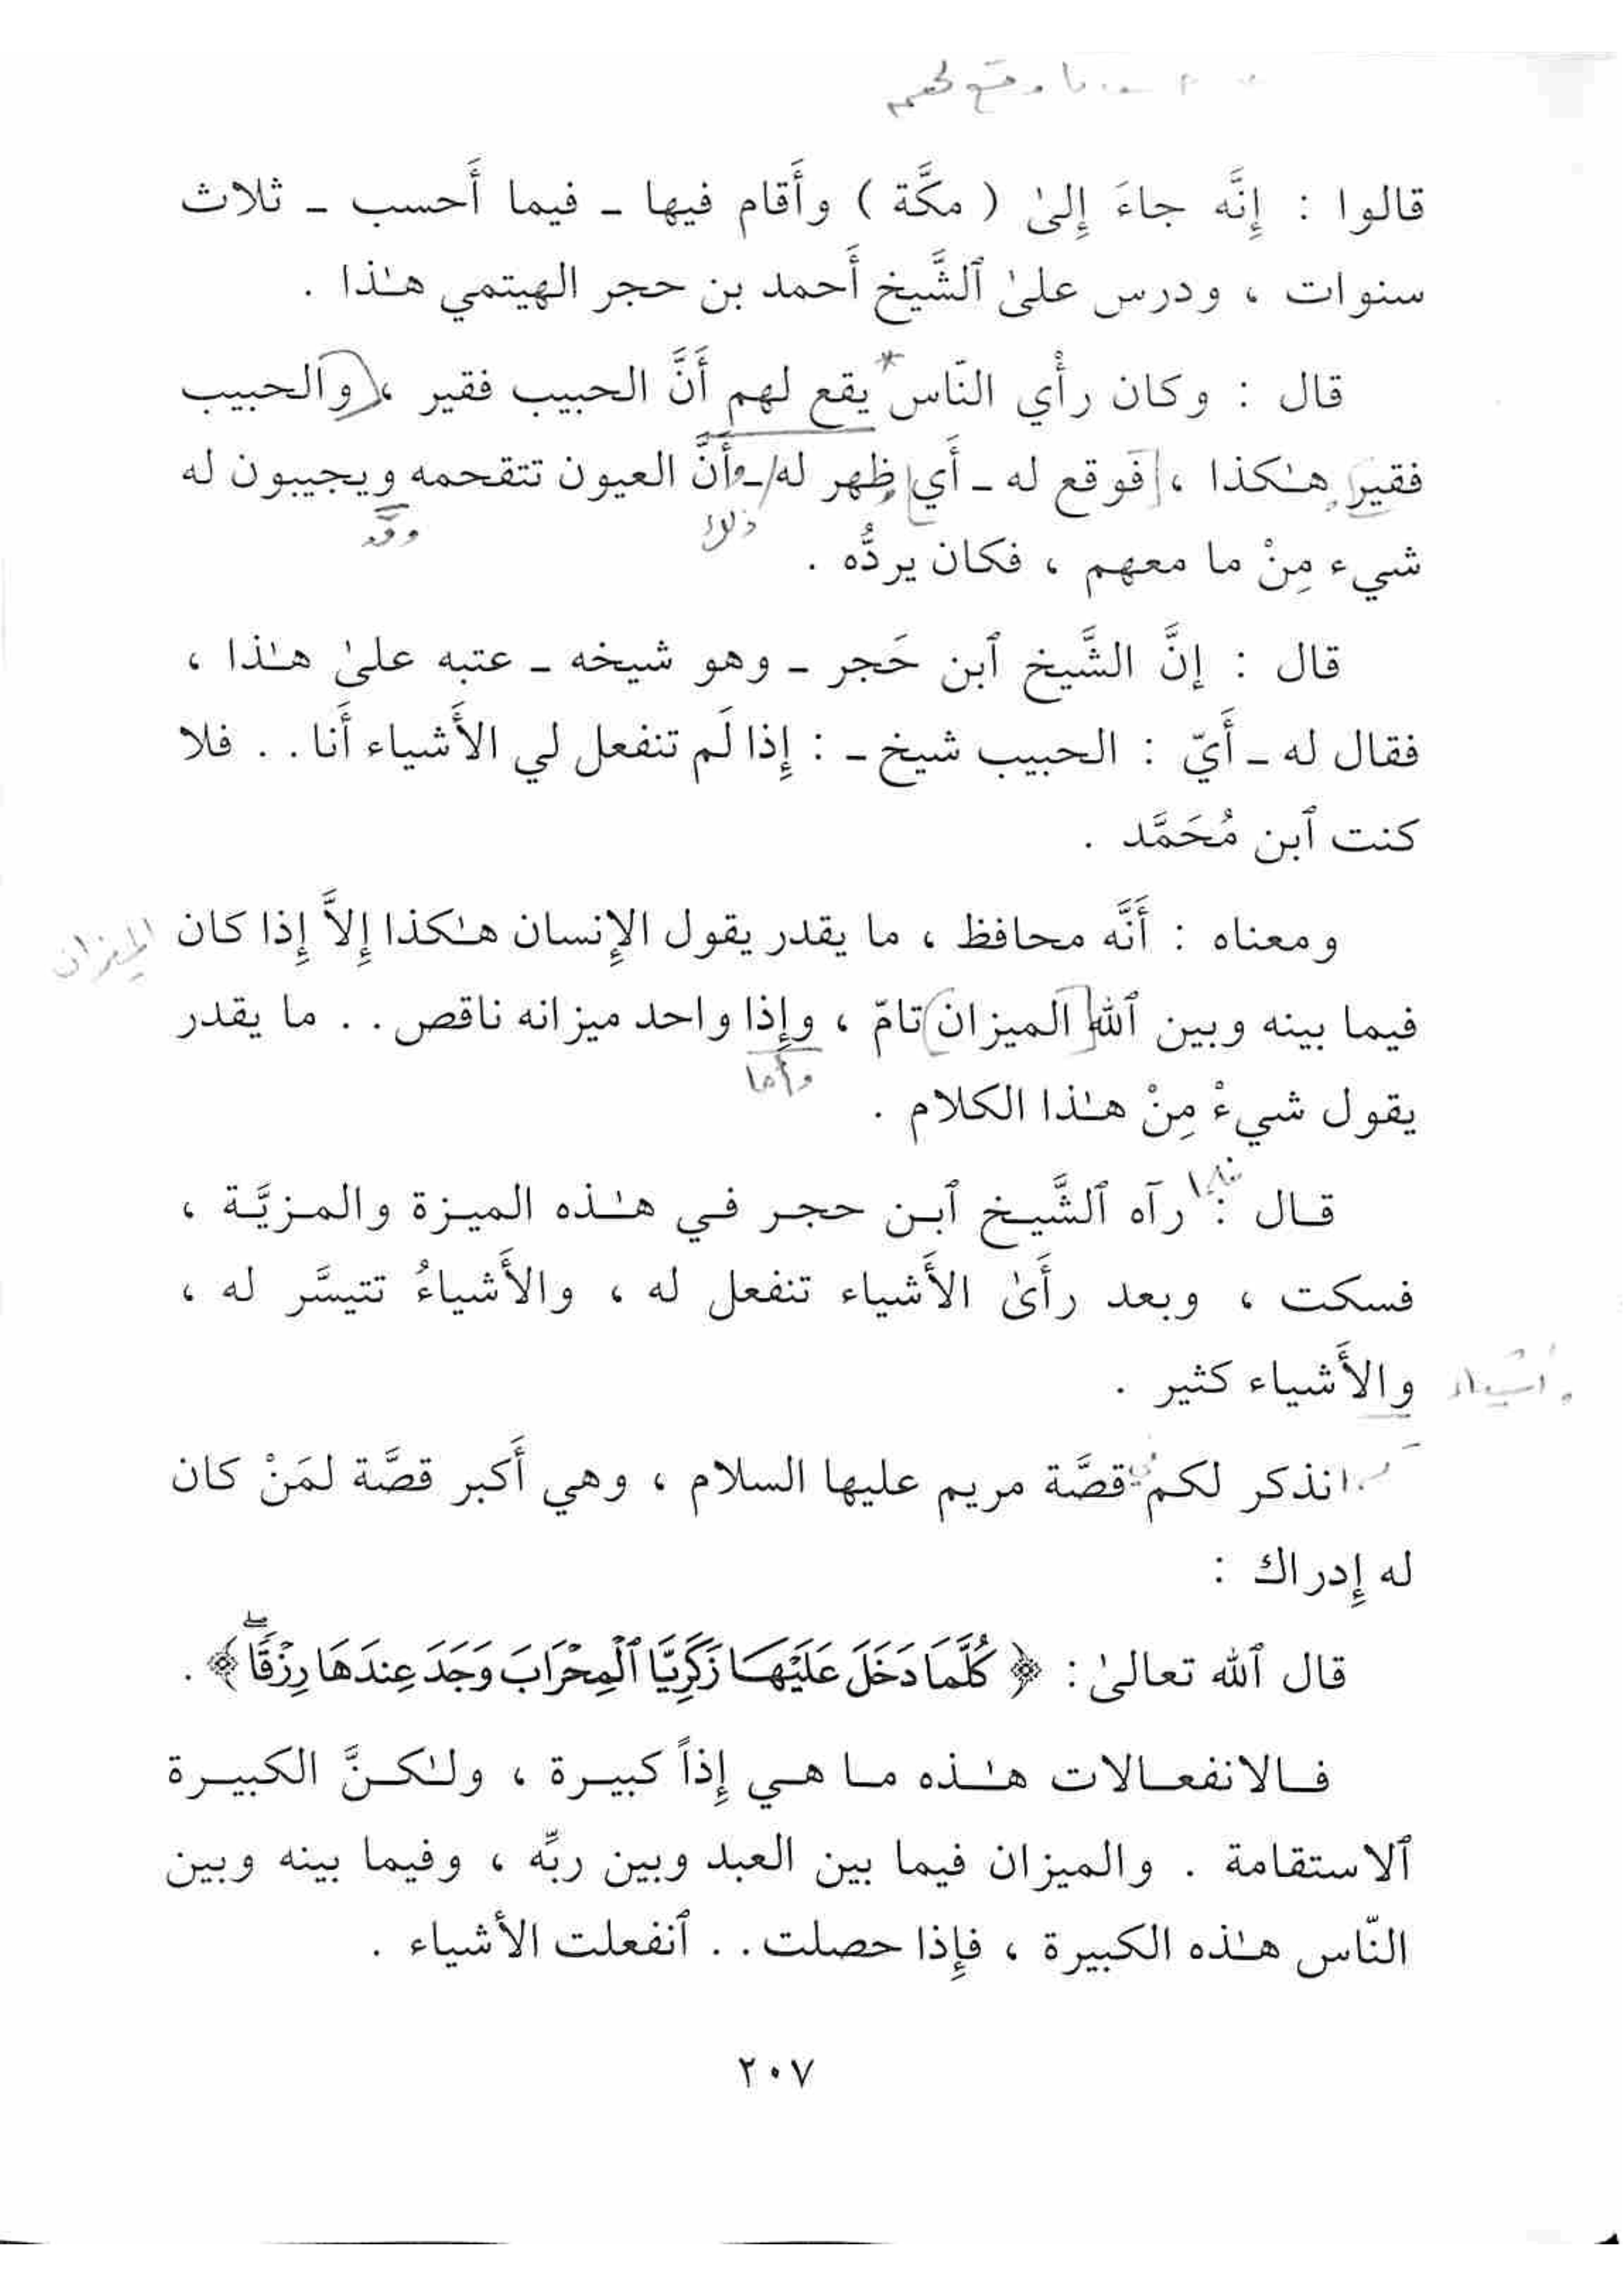 وقع لهم
قالوا : إِنَّه جاءَ إِلىٰ ( مكَّة ) وأَقام فيها ـ فيما أَحسب ـ ثلاث
سنوات ، ودرس علىٰ ٱلشَّيخ أَحمد بن حجر الهيتمي هـٰذا .
قال : وكان رأْي النّاس * يقع لهم أَنَّ الحبيب فقير ، والحبيب
فقير هـٰكذا ، فوقع له ـ أَي ظهر له ـ وأَنَّ العيون تتقحمه ويجيبون له
ذلك وقد
شيء مِنْ ما معهم ، فكان يردُّه .
قال : إنَّ الشَّيخ ٱبن حَجر ـ وهو شيخه ـ عتبه علىٰ هـٰذا ،
فقال له ـ أَيّ : الحبيب شيخ ـ : إِذا لَم تنفعل لي الأَشياء أَنا . . فلا
كنت ٱبن مُحَمَّد .
ومعناه : أَنَّه محافظ ، ما يقدر يقول الإِنسان هـٰكذا إِلاَّ إِذا كان
الميزان
فيما بينه وبين ٱلله الميزان تامّ ، وإِذا واحد ميزانه ناقص . . ما يقدر
وأما
يقول شيءْ مِنْ هـٰذا الكلام .
قـال : رآه ٱلشَّيـخ ٱبـن حجـر فـي هـٰـذه الميـزة والمـزيَّـة ،
فسكت ، وبعد رأَىٰ الأَشياء تنفعل له ، والأَشياءُ تتيسَّر له ،
والأَشياء كثير .
وأشياء
انذكر لكم قصَّة مريم عليها السلام ، وهي أَكبر قصَّة لمَنْ كان
له إِدراك :
قال ٱلله تعالىٰ : ﴿ كُلَّمَا دَخَلَ عَلَيْهَا زَكَرِيَّا ٱلْمِحْرَابَ وَجَدَ عِندَهَا رِزْقًاۖ ﴾ .
فـالانفعـالات هـٰـذه مـا هـي إِذاً كبيـرة ، ولـٰكـنَّ الكبيـرة
ٱلاستقامة . والميزان فيما بين العبد وبين ربِّه ، وفيما بينه وبين
النّاس هـٰذه الكبيرة ، فإِذا حصلت . . ٱنفعلت الأشياء .
٢٠٧